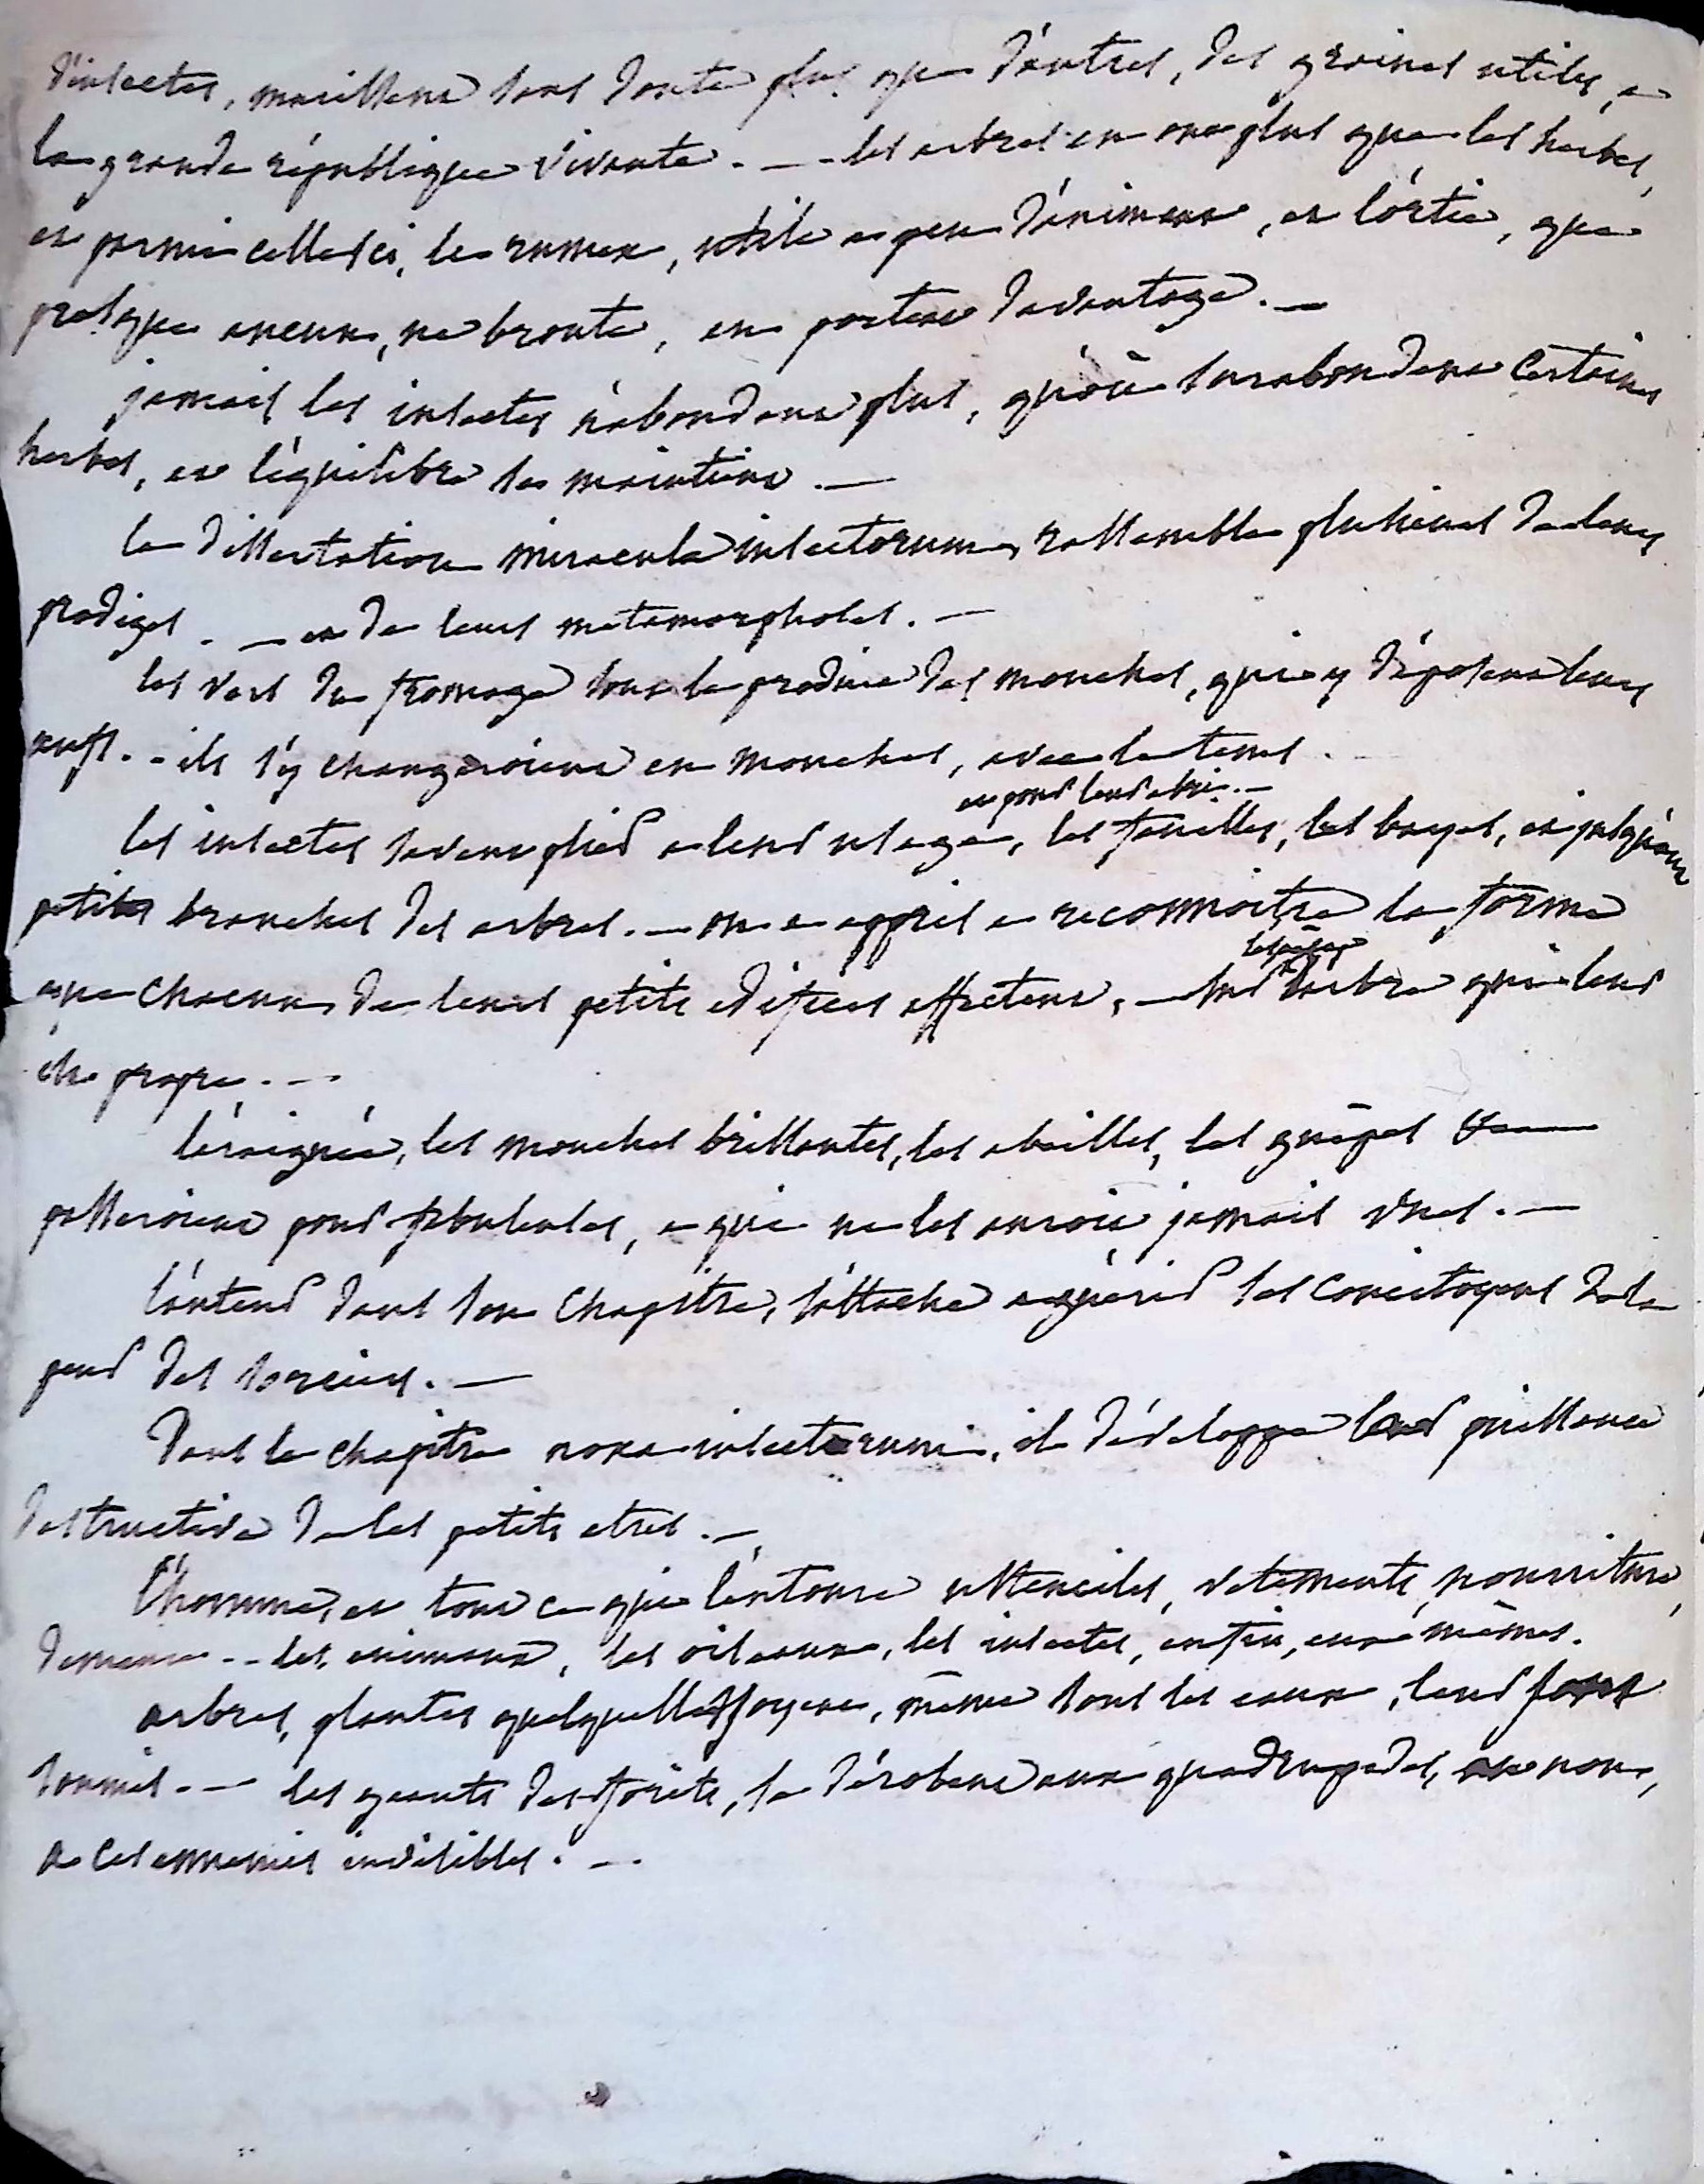 d'insectes, mûrissent sans doute plus que d'autres, des graines utiles, a
la grande république vivante. — les arbres en ont plus que les herbes,
et parmi celles ci, le rumex, utile a peu d'animaux, et l'ortie, que
presque aucun, ne broute, en portent davantage. —
jamais les insectes n'abondent plus, qu'où surabondent certaines
herbes, et l'équilibre se maintient. —
la dissertation miracula insectorum, rassemble plusieurs de leurs
prodiges. — et de leurs metamorphoses. —
les vers du fromage sont le produit des mouches, qui y déposent leurs
œufs. - ils s'y changeroient en mouches, avec le tems.
et pour leur abri. —
les insectes savent plier a leur usage, les feuilles, les bayes, et jusqu'aux
petites branches des arbres. — on a appris a reconnoitre la forme
que chacun de leurs petits edifices affectent, — sur l'arbre qui leur
est propre. —
l'araignée, les mouches brillantes, les abeilles, les guêpes
passeroient pour fabuleuses, a qui ne les auroit jamais vues. —
l'auteur dans son chapitre, s'attache a guérir ses concitoyens de la
peur des sorciers. —
Dans le chapitre noxa insectorum, il développe leur puissance
destructive de ces petits etres. —
l'homme, et tout ce qui l'entoure ustenciles, vetements, nourriture,
demeure -- les animaux, les oiseaux, les insectes, enfin, eux mêmes.
arbres, plantes quelqu'elles soyent, même sous les eaux, leur sont
soumis. — les geants des forêts, se dérobent aux quadrupedes, et non,
a ces ennemis invisibles. —